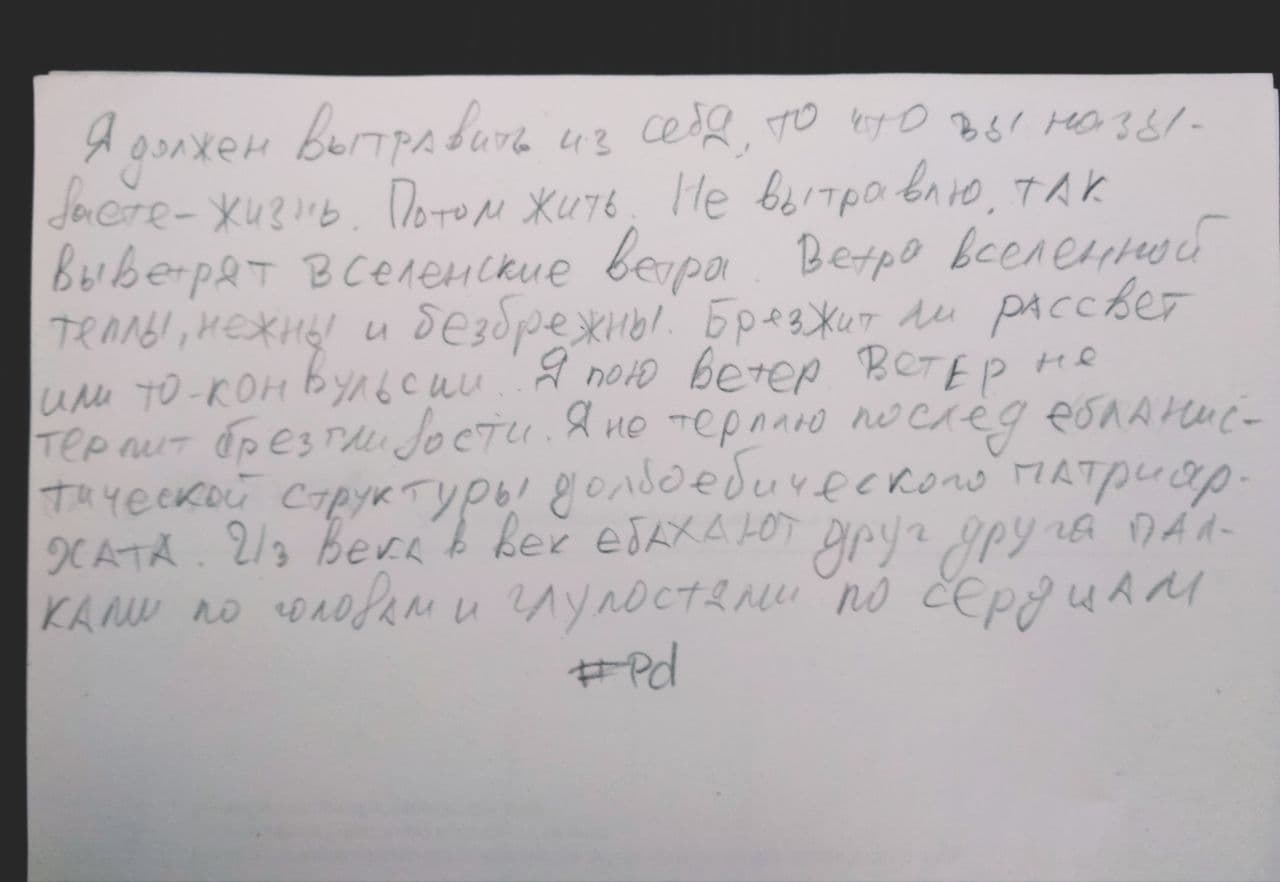 Я должен вытравить из себя, то что вы назы-
ваете-жизнь. Потом жить. Не вытравлю, так
выветрят вселенские ветра. Ветра вселенной
теплы, нежны и безбрежны. Брезжит ли рассвет
или то-конвульсии. Я пою ветер. Ветер не
терпит брезгливости. Я не терплю послед ебланис-
тической структуры долбоебического патриар-
хата. Из века в век ебахают друг друга пал-
ками по головам и глупостями по сердцам
#Pd